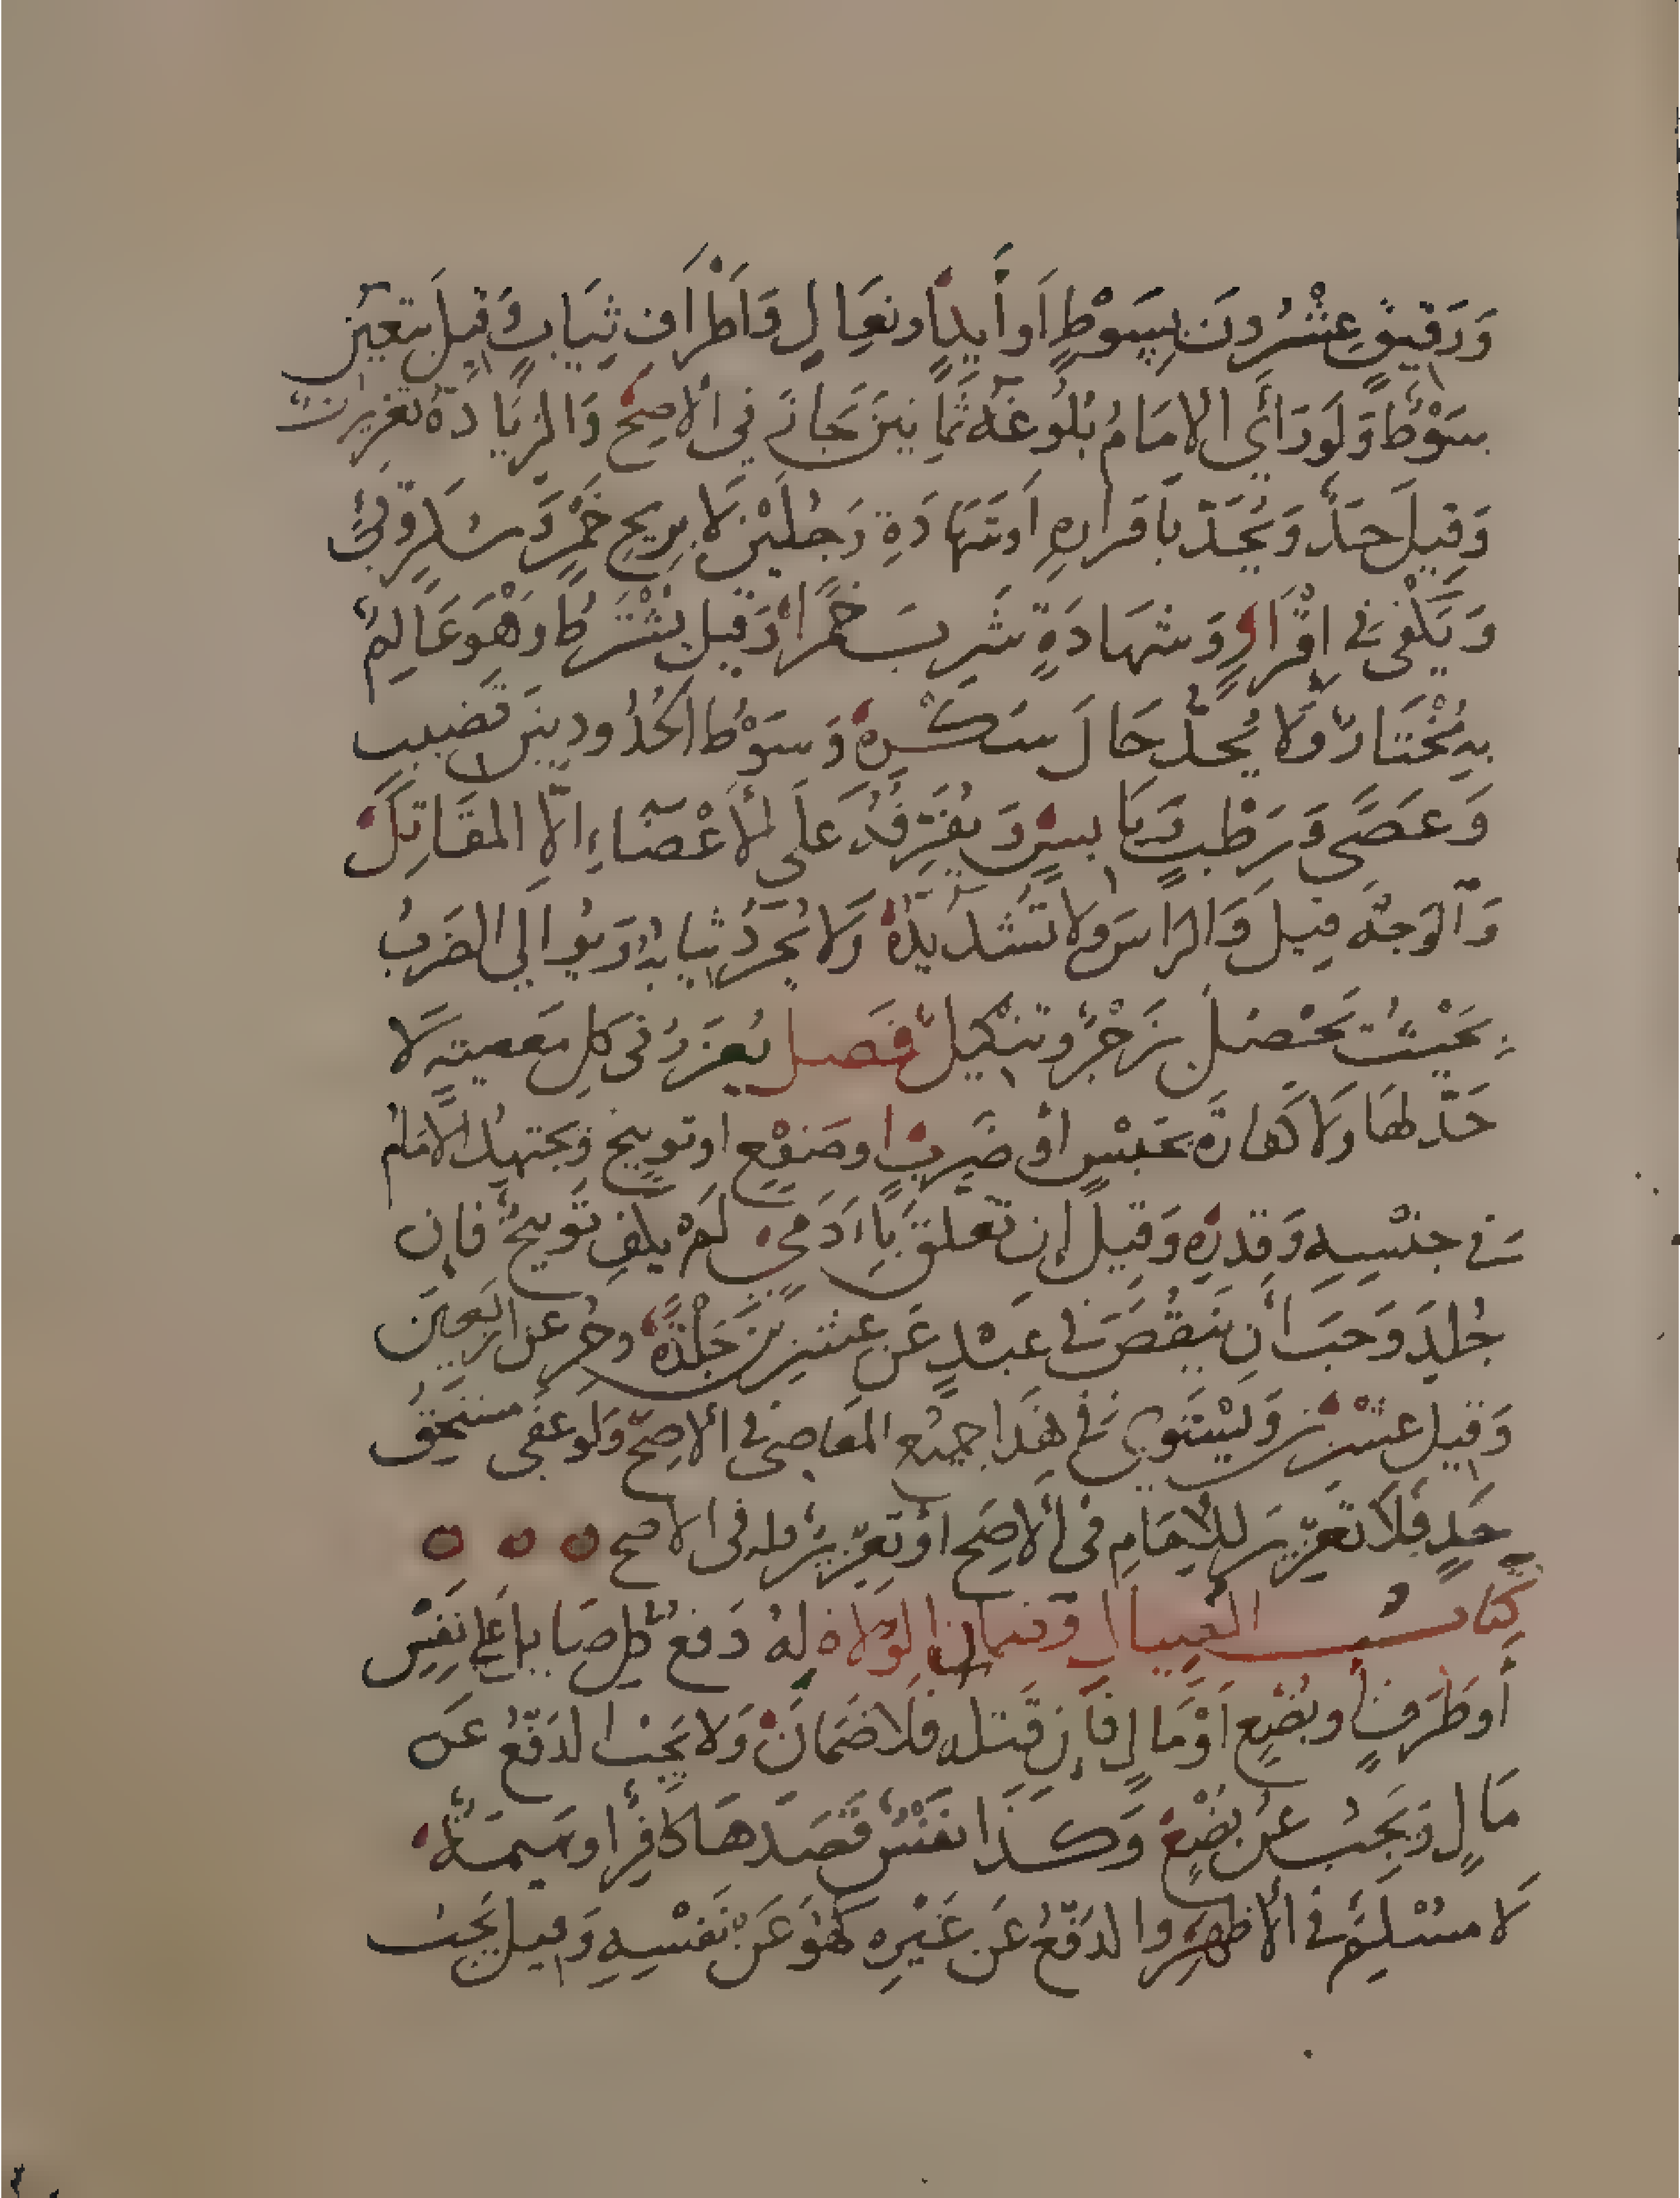 وَرَقيقٍ عِشْرُونَ بِسَوْطٍ اَو أَيدٍ او نِعَالٍ وَاَطْرَافِ ثِيَابٍ وَقِيلَ يتعيّن
سَوْطٌ وَلَو رَاَي الامَامُ بُلُوغَهُ ثَمَانِينَ جَازَ فِي الاَصَحّ وَالزيَادَةُ تعزيرات
وَقيلَ حدٌّ وَيُحَدّ بِاقرارهِ اَو شَهَادَةِ رَجُلَيْنِ لَا بِرِيحِ خَمْرٍ وَسُكرٍ وَقَيْئٍ
وَيَكْفى فى اقْرَارٍ وَشهَادَةٍ شَرِبَ خَمرًا وَقيل يشْتَرَطُ وَهْوَ عَالِمٌ
بِهِ مُخْتَارٌ وَلَا يُحدّ حَالَ سكْرِهِ وَسَوْطُ الحُدُودِ بينَ قَضيبٍ
وَعَصًى وَرَطْبٍ وَيَابسٍ وَيُفَرِّقُهُ عَلَى الأَعْضَاءِ الَّا المقَاتِلَ
وَالوَجْهَ قِيلَ وَالرَاسَ وَلا تُشَدّ يَدُهُ وَلا تُجَرّدُ ثيابُهُ وَيُوَالي الضَربُ
بِحَيْثُ يَحْصُلُ زَجْرٌ وتنْكيلٌ فَصل يُعَزرُ فى كلِ مَعصيةٍ لَا
حَدّ لهَا وَلا كَفارَةَ بحَبْسٍ اَوْ ضَربٍ او صَفْعٍ اوتوبيخٍ وَيجتهِدُ الامَامُ
فى جنْسِهِ وَقدرِهِ وَقِيلَ إِن تَعلّقَ بِاادَمِىٍ لَمْ يكفِ تَوبيخٌ فَإِن
جُلِدَ وَجَبَ اَنْ يَنقُصَ فى عَبْدٍ عَن عِشرِينَ جَلْدَةً وحُرٍ عن اربَعِينَ
وَقيل عشْرينَ وَيَسْتَوِى فى هَذَا جميْعُ المعَاصِى فى الاصَحّ وَلو عفى مستحِقُ
حَدٍ فَلَا تعزيرَ للامَامِ فى الاصَح اَوْ تَعْزيرٍ فله فى الاصح
كتابُ الصيال وَضمان الوُلاةِ لهُ دَفعُ كلِ صَايل عَلى نَفسٍ
أَوطَرَفٍ اَو بُضْعٍ اَوْمَالٍ فَإِن قَتلهُ فلاضَمانَ وَلا يَجبُ الدَفْعُ عَن
مَالٍ وَيَجِبُ عَن بُضْعٍ وَكَذا نفسٌ قَصَدَهَا كافِرٌ او بَهيمَةٌ
لَا مسْلِمٌ فى الأَظهَرِ والدَفْعُ عَن غَيْرِهِ كَهُوَ عَنْ نَفسِهِ وَقيل يَجبُ